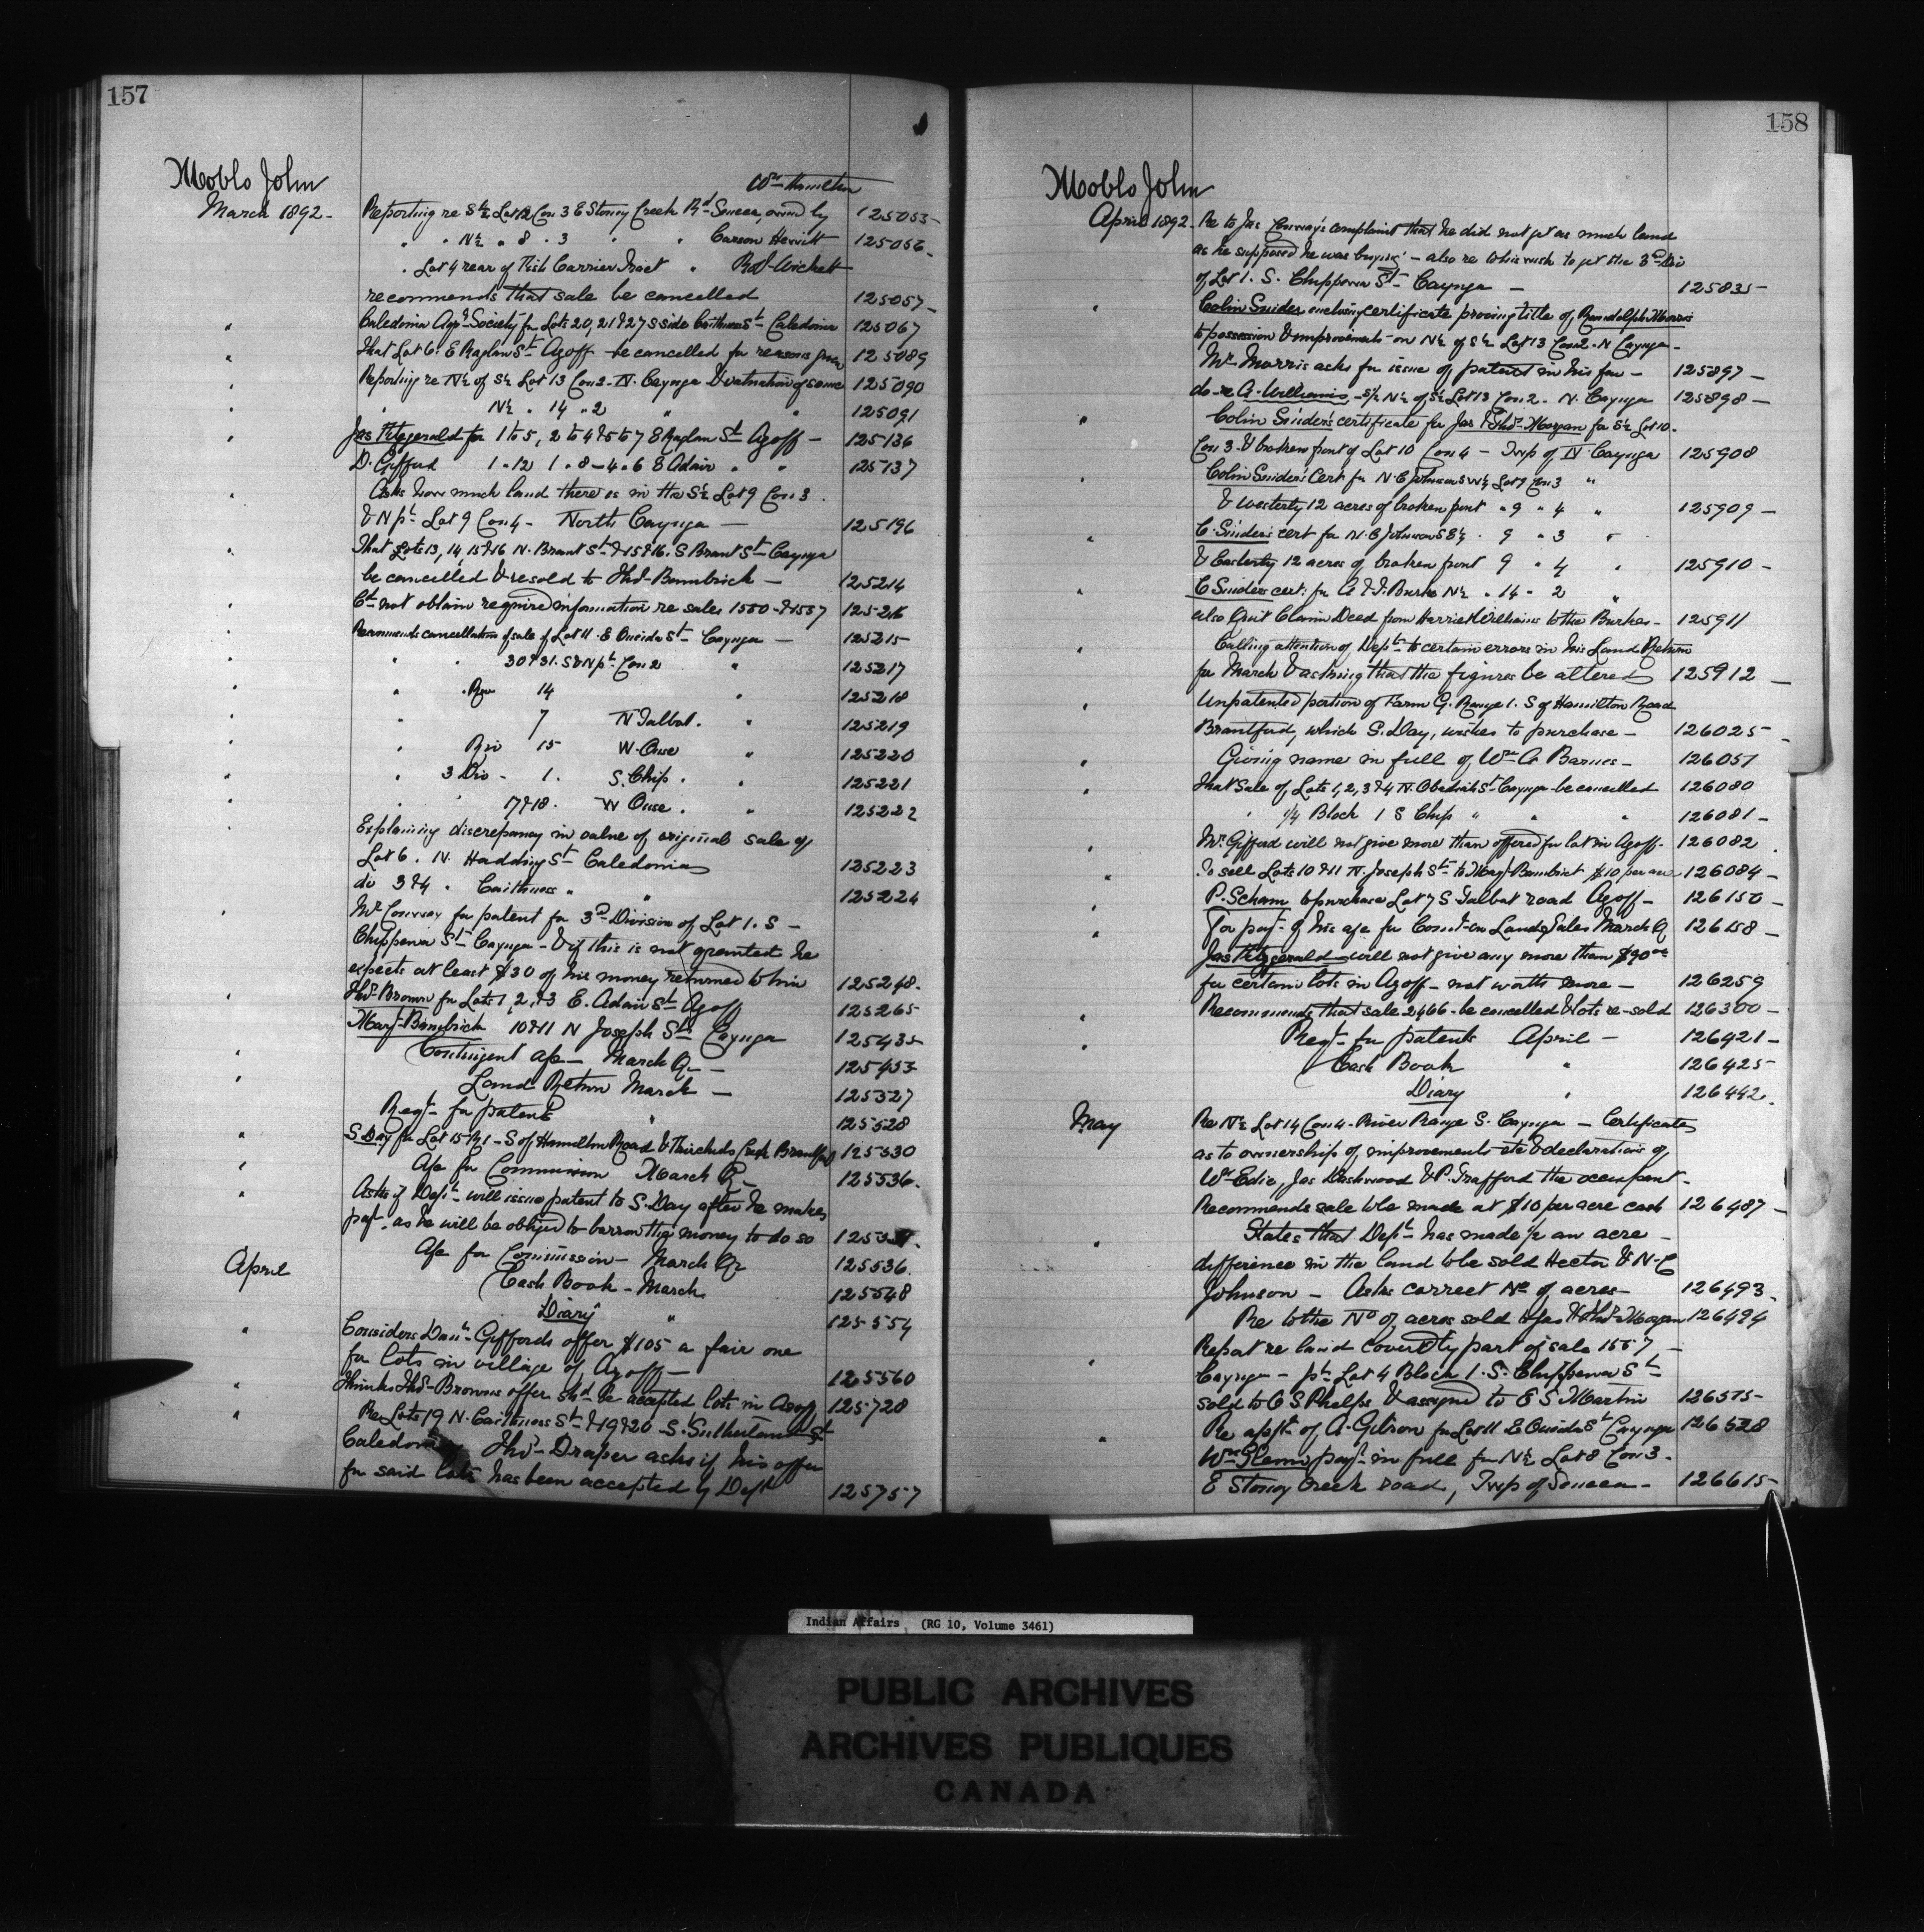 157
Moblo John
Wm Hamilton
March 1892 - Reporting re S½ Lot 12 Con 3 E Stoney Creek Rd Seneca, owned by 125055 -
" " N½ " 8 " 3 " " Carson Hewitt 125056 -
" Lot 4 rear of Fish Carrier Tract " Robt Wickett
recommends that sale be cancelled 125057 -
" Caledonia Agrl Society for Lots 20, 21 & 27 S side Caithness St Caledonia 125067
" That Lot 6. E Raglan St Azoff be cancelled for reasons given 125089
" Reporting re N½ of S½ Lot 13 Con 2 - N. Cayuga & valuation of same 125090
" " N½ " 14 " 2 " " 125091
" Jas Fitzgerald for 1 to 5, 2 to 4 & 5 to 7 E Raglan St Azoff - 125136
D. Gifford 1 " 12 1 " 8 - 4 " 6 E Adair " " 125137
" Asks how much land there is in the S½ Lot 9 Con 3.
& N pt Lot 9 Con 4 - North Cayuga - 125196
" That Lots 13, 14, 15 & 16 N. Brant St & 15 & 16. S Brant St Cayuga
be cancelled & resold to Thos Bambrick - 125214
" Cd not obtain required information re sales 1550 & 1557 125216
" Recommends cancellation of sale of Lot 11. E Oneida St Cayuga - 125215
" " " 30 & 31. S & N pt Con 2 " 125217
" " " Riv 14 " 125218
" " 7 N Talbot. " 125219
" " Riv 15 W. Ouse " 125220
" " 3 Div - 1. S. Chip. " 125221
" " " 17 & 18. W Ouse. " 125222
" Explaining discrepancy in value of original sale of
Lot 6. N. Hadding St Caledonia 125223
do 3 & 4 " Caithness " " 125224
" Mr Conway for patent for 3rd Division of Lot 1. S -
Chippewa St Cayuga - & if this is not granted he
expects at least $30 of his money returned to him 125248.
" Thos Brown for Lots 1, 2, & 3 E. Adair St Azoff 125265
Margt Bambrick 10 & 11 N Joseph St Cayuga 125435
" Contingent a/c - March Qr - 125453
" Land Return March - 125527
Reqt for patents " 125528
" S. Day for Lot 15 R 1 - S of Hamilton Road & Fairchilds Creek Brantford 125530
" A/c for Commission March Qr 125536.
" Asks if Dept will issue patent to S. Day after he makes
payt. as he will be obliged to borrow the money to do so
April A/c for Commission - March Qr 125536.
Cash Book - March 125548
Diary " 125554
" Considers Danl Giffords offer $105 a fair one
for lots in village of Azoff - 125560
" Thinks Thos Browns offer shd be accepted lots in Azoff 125728
" Re Lots 19 N. Caithness St & 19 & 20 - S. Sutherland St
Caledonia Thos Draper asks if his offer
for said lots has been accepted by Dept 125757
158
Moblo John
April 1892 - Re to Jas Conway's complaint that he did not get as much land
as he supposed he was buying - also re to his wish to get the 3rd Div
of Lot 1. S. Chippewa St Cayuga - 125835 -
" Colin Snider enclosing certificate proving title of Randolph Morris
to possession & improvements on N½ of S½ Lot 13 Con 2 - N Cayuga -
Mr Morris asks for issue of patent in his fav - 125897 -
do - re A. Williams, - S½ N½ of S½ Lot 13 Con 2 - N. Cayuga 125898 -
" Colin Snider's certificate for Jas & Thos Morgan for S½ Lot 10 -
Con 3 & broken front of Lot 10 Con 4 - Twp of N Cayuga 125908
" Colin Snider's Cert for N. C Johnson S W¼ Lot 9 Con 3 "
& Westerly 12 acres of broken front " 9 " 4 " 125909 -
" C. Snider's cert for N. C Johnson S E¼ " 9 " 3 "
& Easterly 12 acres of broken front 9 " 4 " 125910 -
" C Sniders cert. for A & J. Burke N½ " 14 " 2 "
also Quit Claim Deed from Harriet Williams to the Burkes - 125911
" Calling attention of Dept to certain errors in his Land Return
for March & asking that the figures be altered 125912 -
" Unpatented portion of Farm G. Range 1. S of Hamilton Road
Brantford, which S. Day, wishes to purchase - 126025 -
" Giving name in full of Wm A Barnes - 126057
" That Sale of Lots 1, 2, 3 & 4 N. Obediah St Cayuga be cancelled 126080
" ¼ Block 1 S Chip " " " 126081 -
" Mr. Gifford will not give more than offered for lot in Azoff - 126082.
" To sell Lots 10 & 11 N. Joseph St to Margt Bambrick $10 per acre 126084 -
" P. Scham to purchase Lot 7 S Talbot road Azoff - 126150 -
" For payt of his a/c for Commn on Land Sales March Qr 126158 -
Jas Fitzgerald will not give any more than $90.00
for certain lots in Azoff - not worth more - 126259
" Recommends that sale 2466 - be cancelled & lots re-sold 126300 -
" Reqt for patents April - 126421 -
Cash Book " 126425
Diary " 126442.
May Re N½ Lot 14 Con 4 - River Range S. Cayuga - Certificates
as to ownership of improvements etc & declarations of
Wm Edie, Jas Dashwood & P. Trafford the occupant -
Recommends sale to be made at $10 per acre cash 126487 -
" States that Dept has made ½ an acre -
difference in the land to be sold Hector & N. C
Johnson - Asks correct No of acres - 126493.
Re to the No of acres sold to Jas & Thos Morgan 126494
" Report re land covered by part of sale 1557 -
Cayuga - pt Lot 4 Block 1. S. Chippewa St
sold to O S Phelps & assigned to E S Martin 126515 -
" Re appn of A. Gibson for Lot 11 E Oneida St Cayuga 126528
Wm Glenn payt in full for N½ Lot 8 Con 3 -
E Stoney Creek road, Twp of Seneca - 126615 -
Indian Affairs (RG 10, Volume 3461)
PUBLIC ARCHIVES
ARCHIVES PUBLIQUES
CANADA